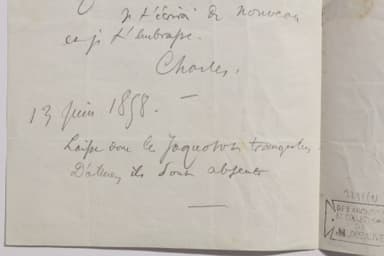 je t'écrirai de nouveau
et je t'embrasse.
Charles.
13 juin 1858.
Laisse donc le Jaquotot tranquille.
D'ailleurs ils sont absents